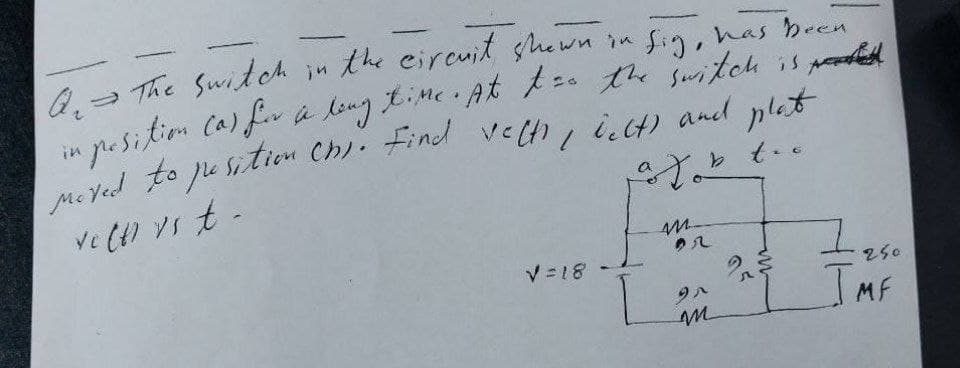 Q2 ⇒ The switch in the circuit shewn in fig, has been
in position (a) for a long time. At t=0 the switch is
moved to position (b). find vc(t), ic(t) and plot
vc(t) vs t -
a b t=0
9Ω
V=18
9Ω
250
9Ω
MF